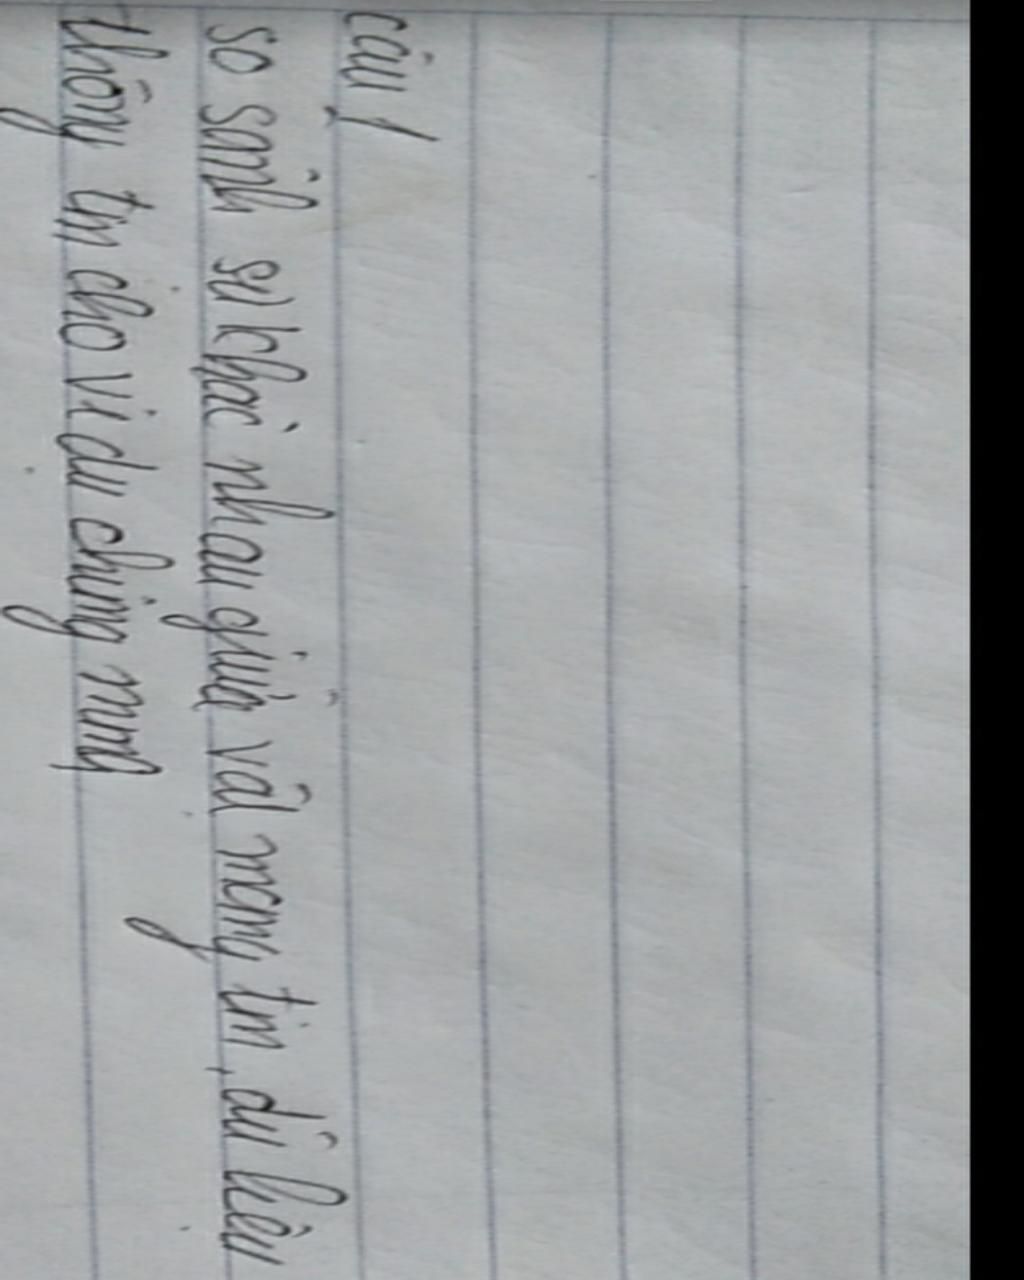 câu 1
so sánh sự khác nhau giữa vật mang tin, dữ liệu
thông tin cho ví dụ chứng minh